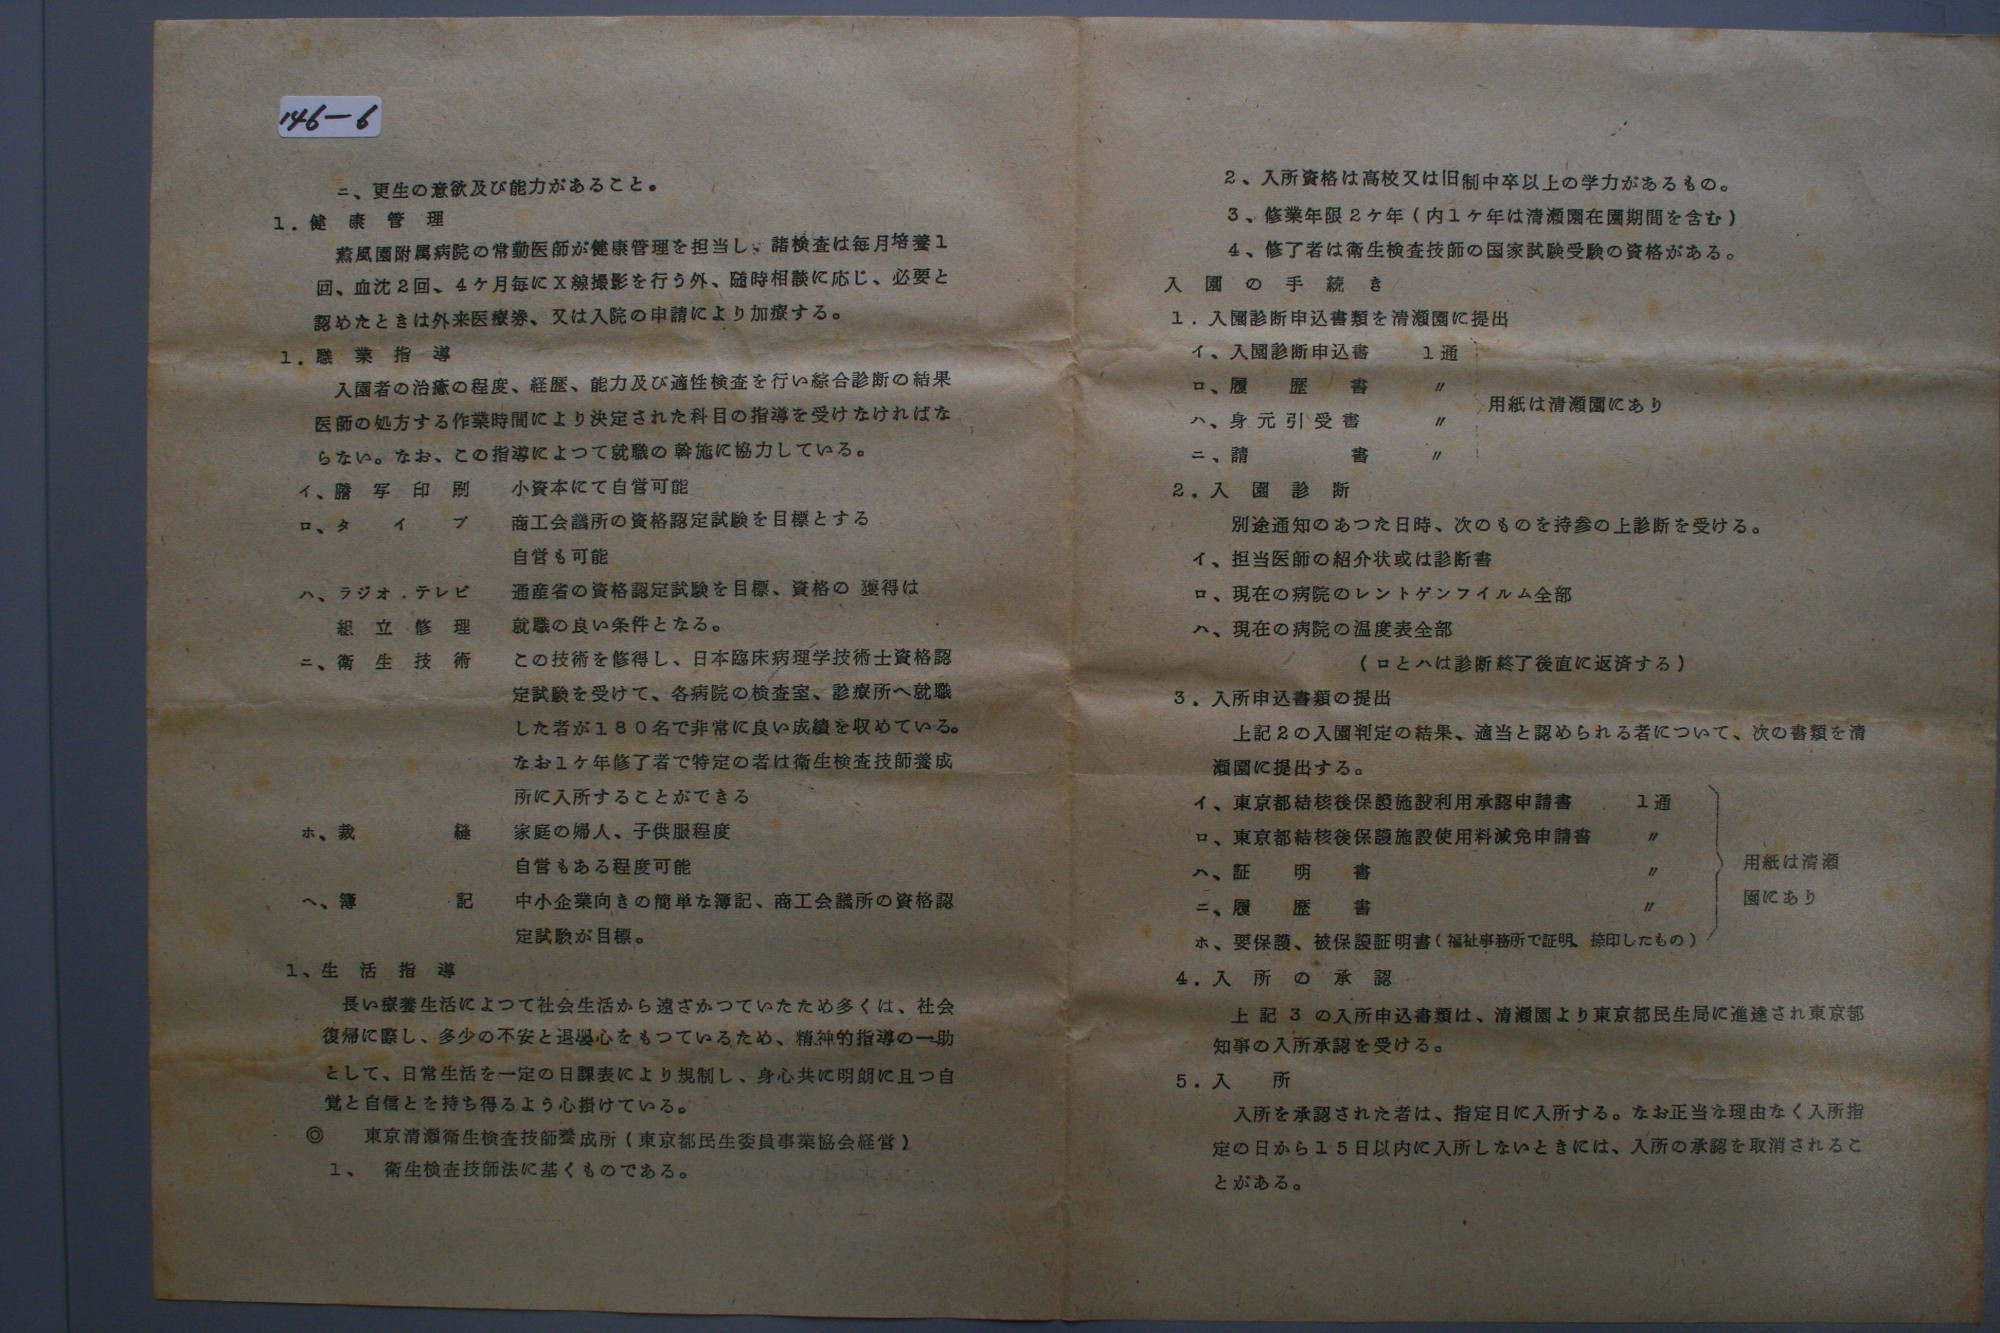 146-6
ニ、更生の意欲及び能力があること。
1．健康管理
薫風園附属病院の常勤医師が健康管理を担当し、諸検査は毎月培養1
回、血沈2回、4ケ月毎にX線撮影を行う外、随時相談に応じ、必要と
認めたときは外来医療券、又は入院の申請により加療する。
1．職業指導
入園者の治癒の程度、経歴、能力及び適性検査を行い綜合診断の結果
医師の処方する作業時間により決定された科目の指導を受けなければな
らない。なお、この指導によつて就職の斡施に協力している。
イ、謄写印刷　小資本にて自営可能
ロ、タイプ　商工会議所の資格認定試験を目標とする
自営も可能
ハ、ラジオ．テレビ　通産省の資格認定試験を目標、資格の獲得は
組立修理　就職の良い条件となる。
ニ、衛生技術　この技術を修得し、日本臨床病理学技術士資格認
定試験を受けて、各病院の検査室、診療所へ就職
した者が180名で非常に良い成績を収めている。
なお1ケ年修了者で特定の者は衛生検査技師養成
所に入所することができる
ホ、裁縫　家庭の婦人、子供服程度
自営もある程度可能
ヘ、簿記　中小企業向きの簡単な簿記、商工会議所の資格認
定試験が目標。
1、生活指導
長い療養生活によつて社会生活から遠ざかつていたため多くは、社会
復帰に際し、多少の不安と退嬰心をもつているため、精神的指導の一助
として、日常生活を一定の日課表により規制し、身心共に明朗に且つ自
覚と自信とを持ち得るよう心掛けている。
◎　東京清瀬衛生検査技師養成所（東京都民生委員事業協会経営）
1、衛生検査技師法に基くものである。
2、入所資格は高校又は旧制中卒以上の学力があるもの。
3、修業年限2ケ年（内1ケ年は清瀬園在園期間を含む）
4、修了者は衛生検査技師の国家試験受験の資格がある。
入園の手続き
1．入園診断申込書類を清瀬園に提出
イ、入園診断申込書　1通
ロ、履歴書　〃
用紙は清瀬園にあり
ハ、身元引受書　〃
ニ、請書　〃
2．入園診断
別途通知のあつた日時、次のものを持参の上診断を受ける。
イ、担当医師の紹介状或は診断書
ロ、現在の病院のレントゲンフイルム全部
ハ、現在の病院の温度表全部
（ロとハは診断終了後直に返済する）
3．入所申込書類の提出
上記2の入園判定の結果、適当と認められる者について、次の書類を清
瀬園に提出する。
イ、東京都結核後保護施設利用承認申請書　1通
ロ、東京都結核後保護施設使用料減免申請書　〃
ハ、証明書　〃
用紙は清瀬
園にあり
ニ、履歴書　〃
ホ、要保護、被保護証明書（福祉事務所で証明、捺印したもの）
4．入所の承認
上記3の入所申込書類は、清瀬園より東京都民生局に進達され東京都
知事の入所承認を受ける。
5．入所
入所を承認された者は、指定日に入所する。なお正当な理由なく入所指
定の日から15日以内に入所しないときには、入所の承認を取消されるこ
とがある。